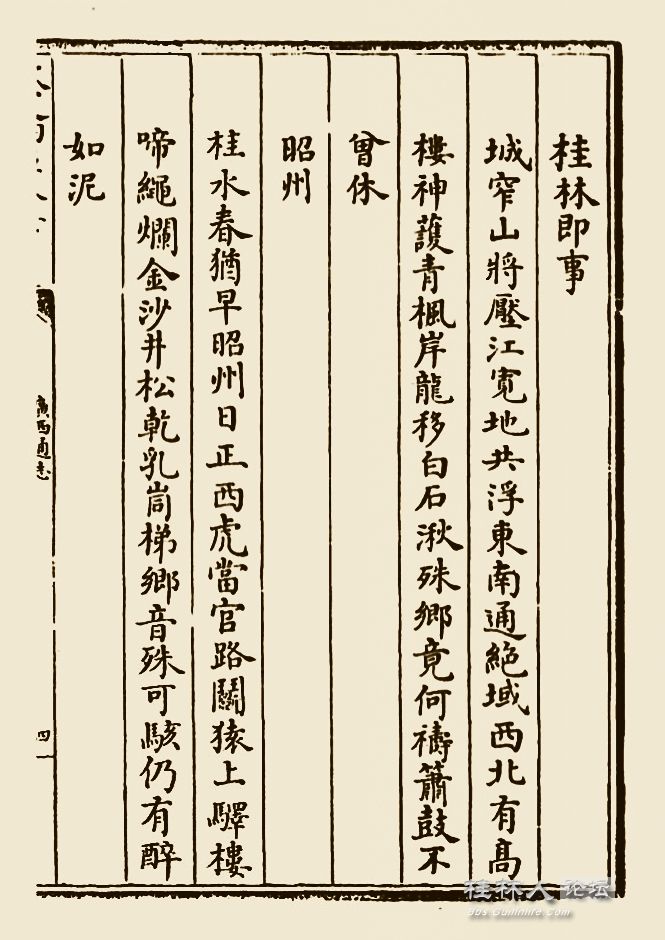 桂林即事
城窄山將壓江寬地共浮東南通絶域西北有髙
樓神䕶青楓岸龍移白石湫殊鄉竟何禱簫鼓不
曾休
昭州
桂水春猶早昭州日正西虎當官路鬬猿上驛樓
啼繩爛金沙井松乾乳峝梯鄉音殊可駭仍有醉
如泥
廣西通志
四
桂林人论坛
bbs.Guilinlife.com